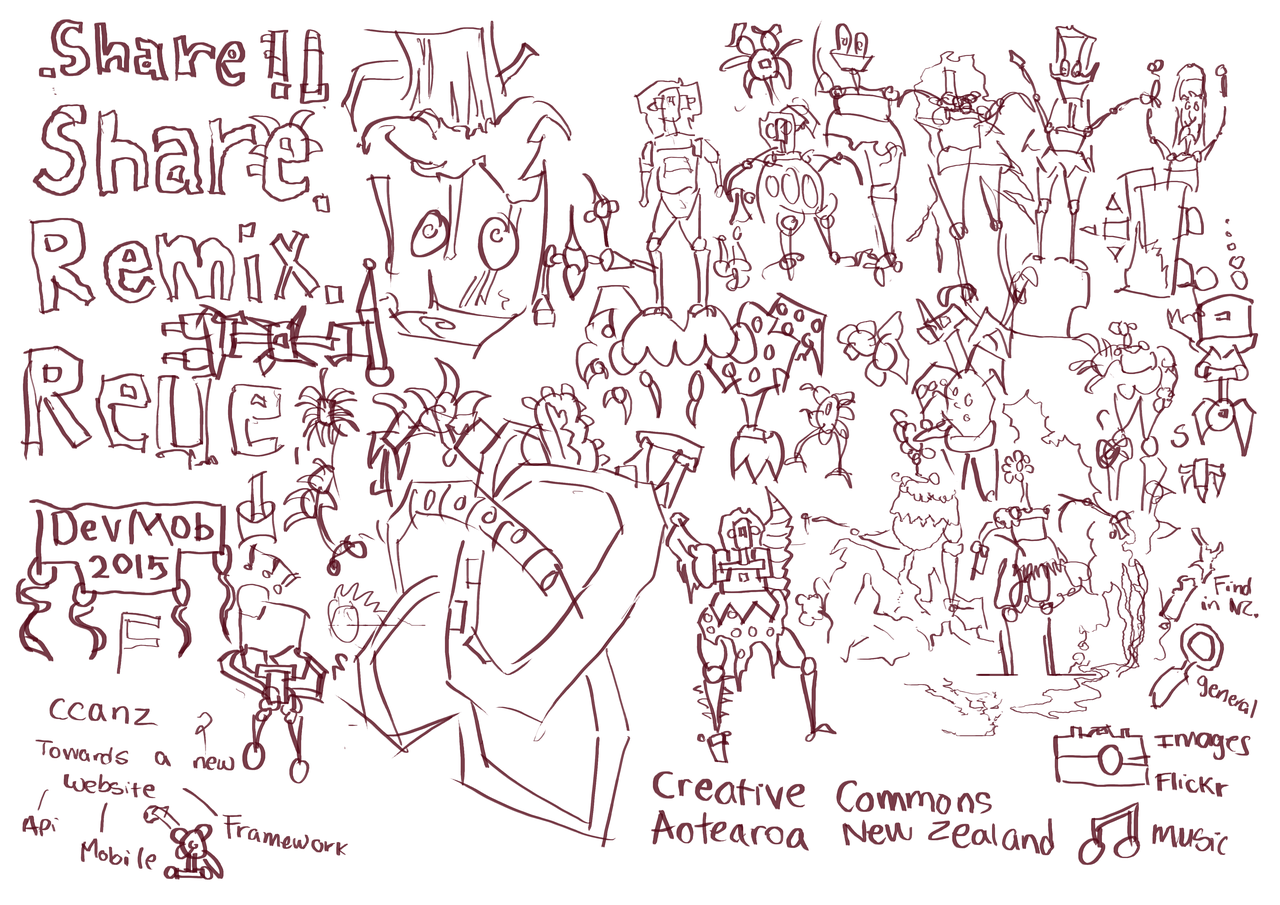 Share!!
Share.
Remix.
Reuse
DevMob
2015
F
ccanz
Towards a new
website
Api
Mobile
Framework
Creative Commons
Aotearoa New Zealand
S
Find
in NZ.
general
Images
Flickr
music